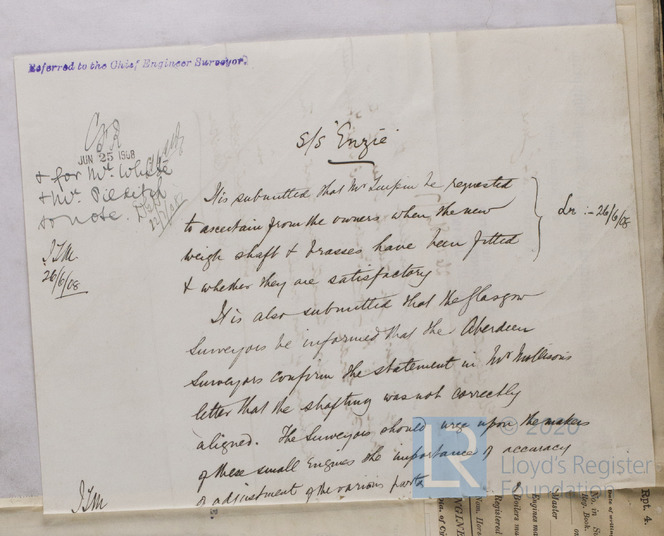 Referred to the Chief Engineer Surveyor.
JUN 25 1908
& for Mr. White
& Mr.
to note.
JTM
26/6/08
S/S "Enzie"
It is submitted that Mr Turpin be requested
to ascertain from the owners when the new
weigh shaft & brasses have been fitted
& whether they are satisfactory
Lr :- 26/6/08
It is also submitted that the Glasgow
Surveyors be informed that the Aberdeen
Surveyors confirm the statement in Mr Mollisons
letter that the shafting was not correctly
aligned. The Surveyors should urge upon the makers
of these small Engines the importance of accuracy
of adjustment of the various parts
JTM
LR
© 2020
Lloyd's Register
Foundation
Rpt. 4.
No. in
Master
Engines
Boilers
Registered
Nom. Horse
ENGINE